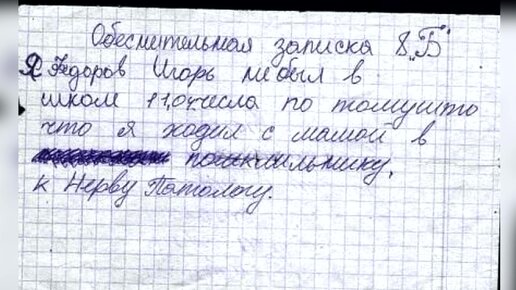 Обеснительная записка 8 „Б"
Я Федоров Игорь небыл в
школе 11.04 числа по томушто
что я ходил с мамой в
поликлильнику,
к Нерву Патологу.